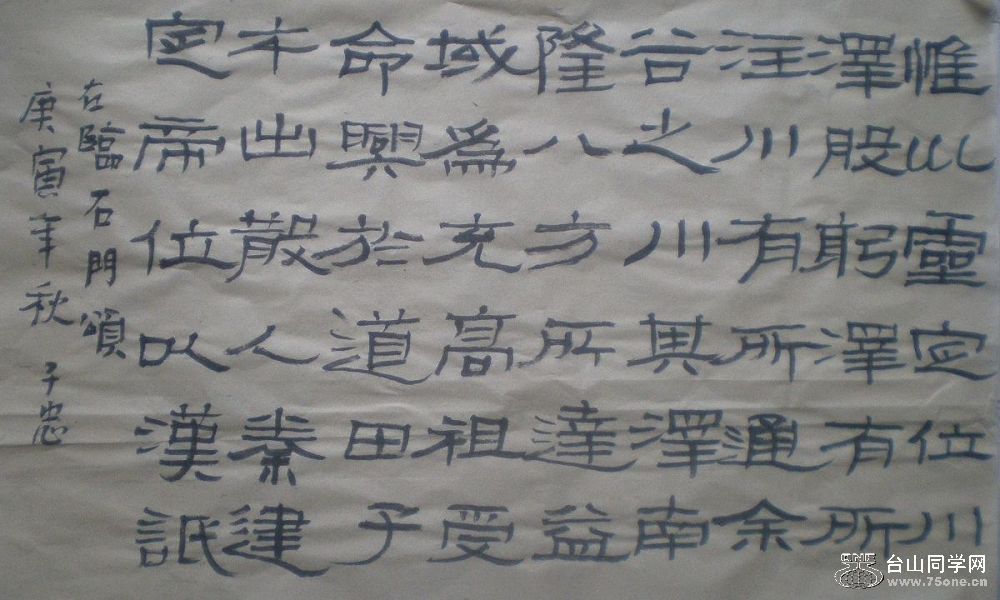 惟巛靈定位川
澤股躬澤有所
注川有所通余
谷之川其澤南
隆八方所達益
域爲充高祖受
命興於道田子
木出散人秦建
定帝位以漢詆
右臨石門頌
庚寅年秋 子忠
CNE 台山同学网
www.75one.cn